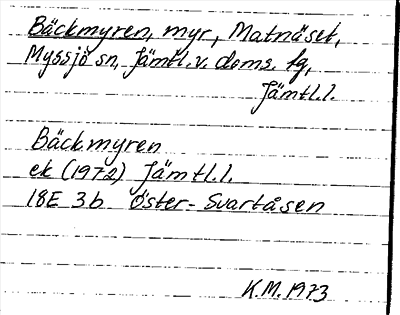 Bäckmyren, myr, Matnäset,
Myssjö sn, Jämtl.v. doms. tg,
Jämtl.l.
Bäckmyren
ek (1972) Jämtl.l.
18E 3b Öster-Svartåsen
K.M. 1973